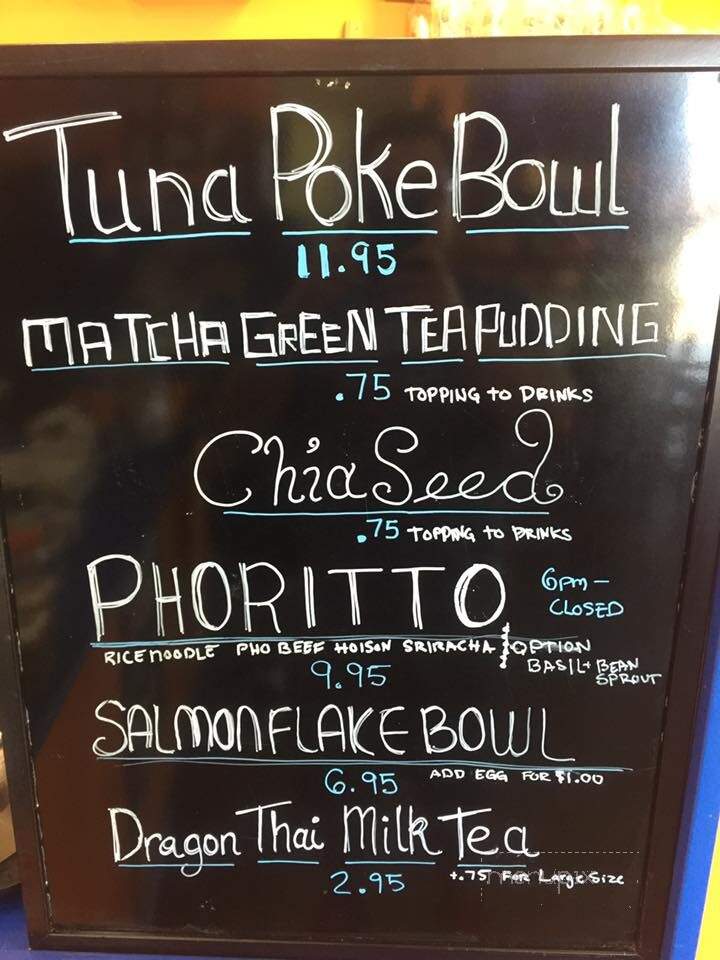 Tuna Poke Bowl
11.95
MATCHA GREEN TEA PUDDING
.75 TOPPING to DRINKS
Chia Seed
.75 TOPPING to DRINKS
PHORITTO
6pm - CLOSED
RICE NOODLE PHO BEEF HOISON SRIRACHA
OPTION
BASIL + BEAN
SPROUT
9.95
SALMON FLAKE BOWL
6.95 ADD EGG FOR $1.00
Dragon Thai Milk Tea
2.95 +.75 FOR Large Size
menupix